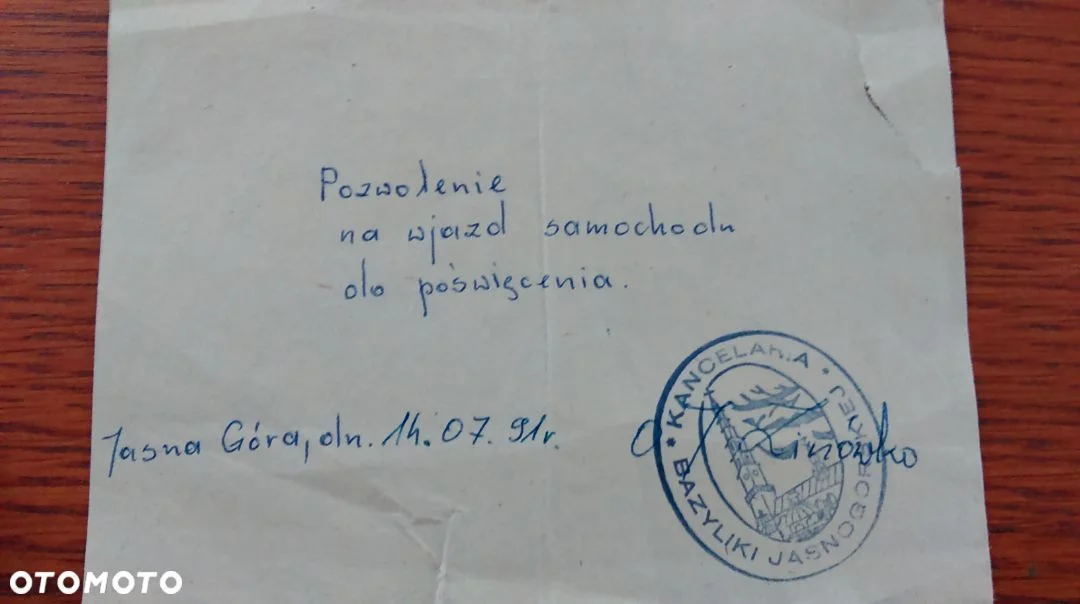 Pozwolenie
na wjazd samochodu
do poświęcenia.
Jasna Góra, dn. 14.07.91r.
* KANCELARIA * BAZYLIKI JASNOGÓRSKIEJ
OTOMOTO